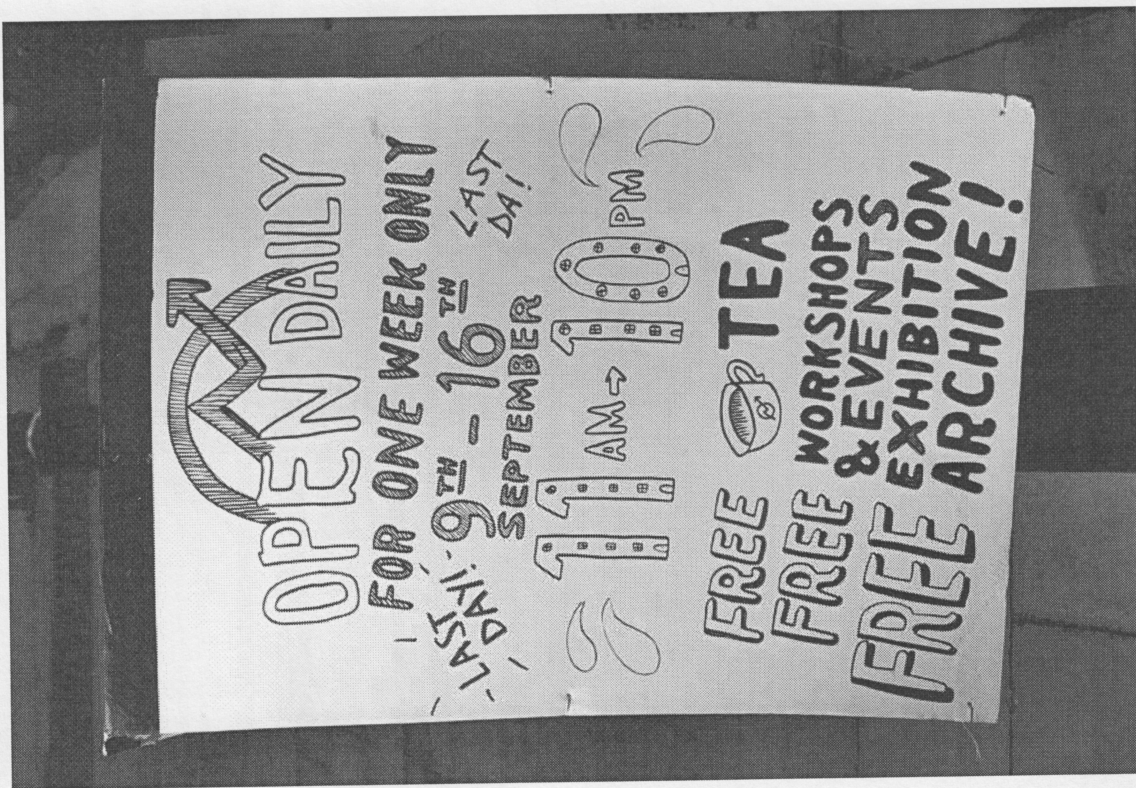 OPEN DAILY
FOR ONE WEEK ONLY
LAST DAY! 9TH - 16TH LAST DA!
SEPTEMBER
11 AM → 10 PM
FREE TEA
FREE WORKSHOPS & EVENTS
FREE EXHIBITION ARCHIVE!